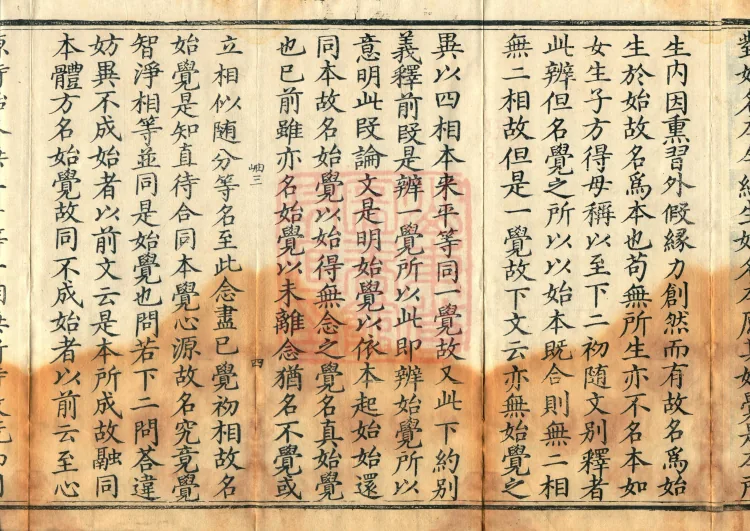 生内因熏習外假緣力創然而有故名爲始
生於始故名爲本也苟無所生亦不名本如
女生子方得母稱以至下二初隨文別釋者
此辨但名覺之所以以始本既合則無二相
無二相故但是一覺故下文云亦無始覺之
異以四相本來平等同一覺故又此下約別
義釋前段是辨一覺所以此即辨始覺所以
意明此段論文是明始覺以依本起始始還
同本故名始覺以始得無念之覺名真始覺
也已前雖亦名始覺以未離念猶名不覺或
岫三
四
立相似隨分等名至此念盡已覺初相故名
始覺是知直待合同本覺心源故名究竟覺
智淨相等並同是始覺也問若下二問荅違
妨異不成始者以前文云是本所成故融同
本體方名始覺故同不成始者以前云至心